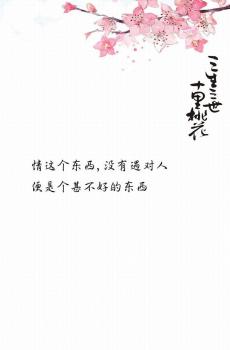 三生三世
十里桃花
情这个东西，没有遇对人
便是个甚不好的东西